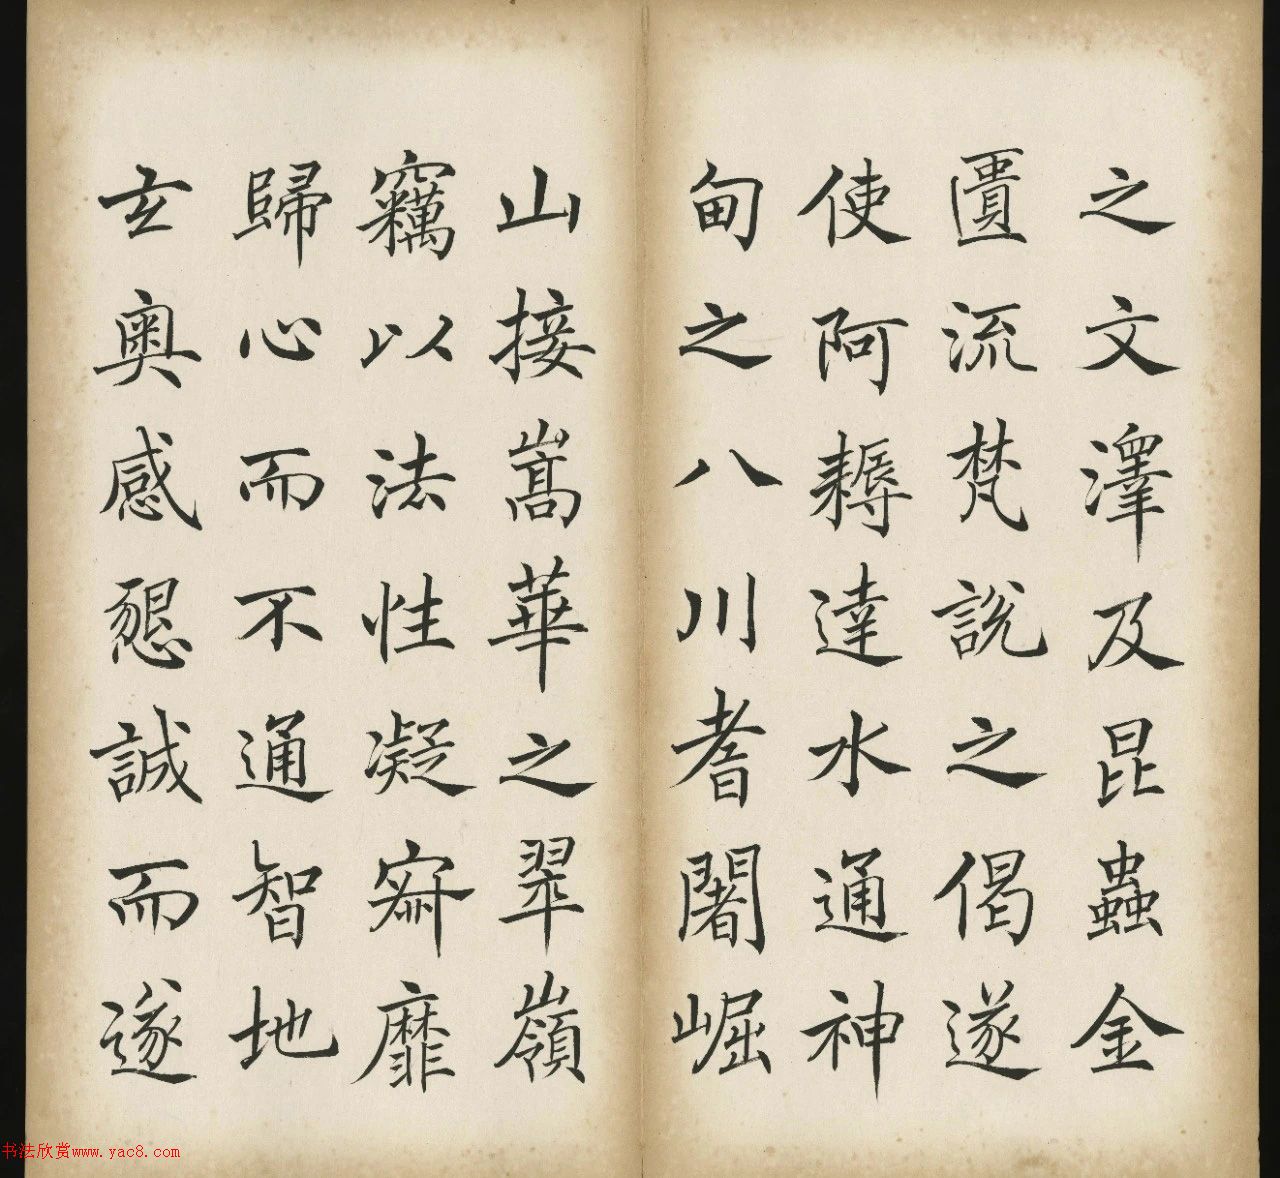 之文澤及昆蟲金
匱流梵說之偈遂
使阿耨達水通神
甸之八川耆闍崛
山接嵩華之翠嶺
竊以法性凝寂靡
歸心而不通智地
玄奧感懇誠而遂
书法欣赏www.yac8.com